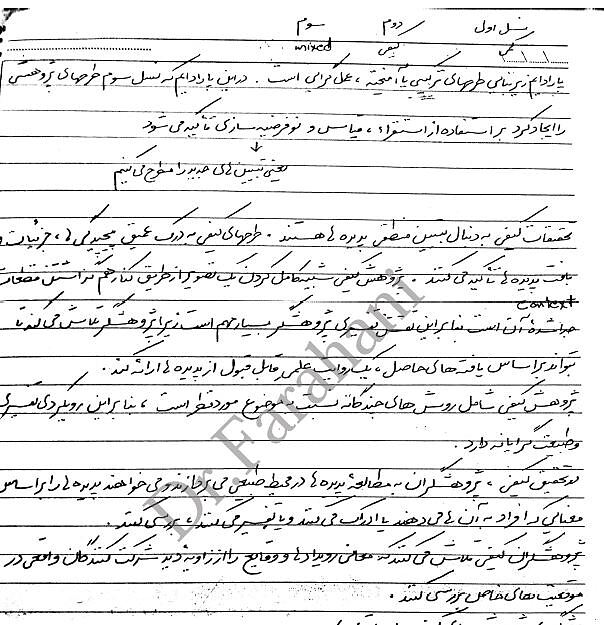 نسل اول دوم سوم
کمی کیفی mixed
پارادایم زیربنایی طرحهای ترکیبی یا آمیخته ، عمل گرایی است . در این پارادایم که نسل سوم طرحهای پژوهشی
را ایجاد کرد بر استفاده از استقراء ، قیاس و نوفرضیه سازی تأکید می شود
↓
یعنی تبیین های جدید را مطرح می کنیم
تحقیقات کیفی به دنبال تبیین منطقی پدیده ها هستند . طرحهای کیفی به درک عمیق پیچیدگی ها ، جزئیات و
بافت پدیده ها تأکید می کنند . پژوهش کیفی شبیه کامل کردن یک تصویر از طریق کنار هم گذاشتن قطعات
context
جدا شدهٔ آن است بنابراین نقش تفسیری پژوهشگر بسیار مهم است زیرا پژوهشگر تلاش می کند تا
بتواند براساس یافته های حاصل ، یک روایت علمی قابل قبول از پدیده ها ارائه کند .
پژوهش کیفی شامل روش های چندگانه نسبت به موضوع مورد نظر است ، بنابراین رویکردی تفسیری
و طبیعت گرایانه دارد .
در تحقیق کیفی ، پژوهشگران به مطالعهٔ پدیده ها در محیط طبیعی می پردازند و می خواهند پدیده ها را براساس
معنایی که افراد به آن ها می دهند یا ادراک می کنند و یا تفسیر می کنند ، بررسی کنند .
پژوهشگران کیفی تلاش می کنند که معانی رویدادها و وقایع را از زاویه دید شرکت کنندگان واقعی در
موقعیت های خاص بررسی کنند .
Dr.Farahani